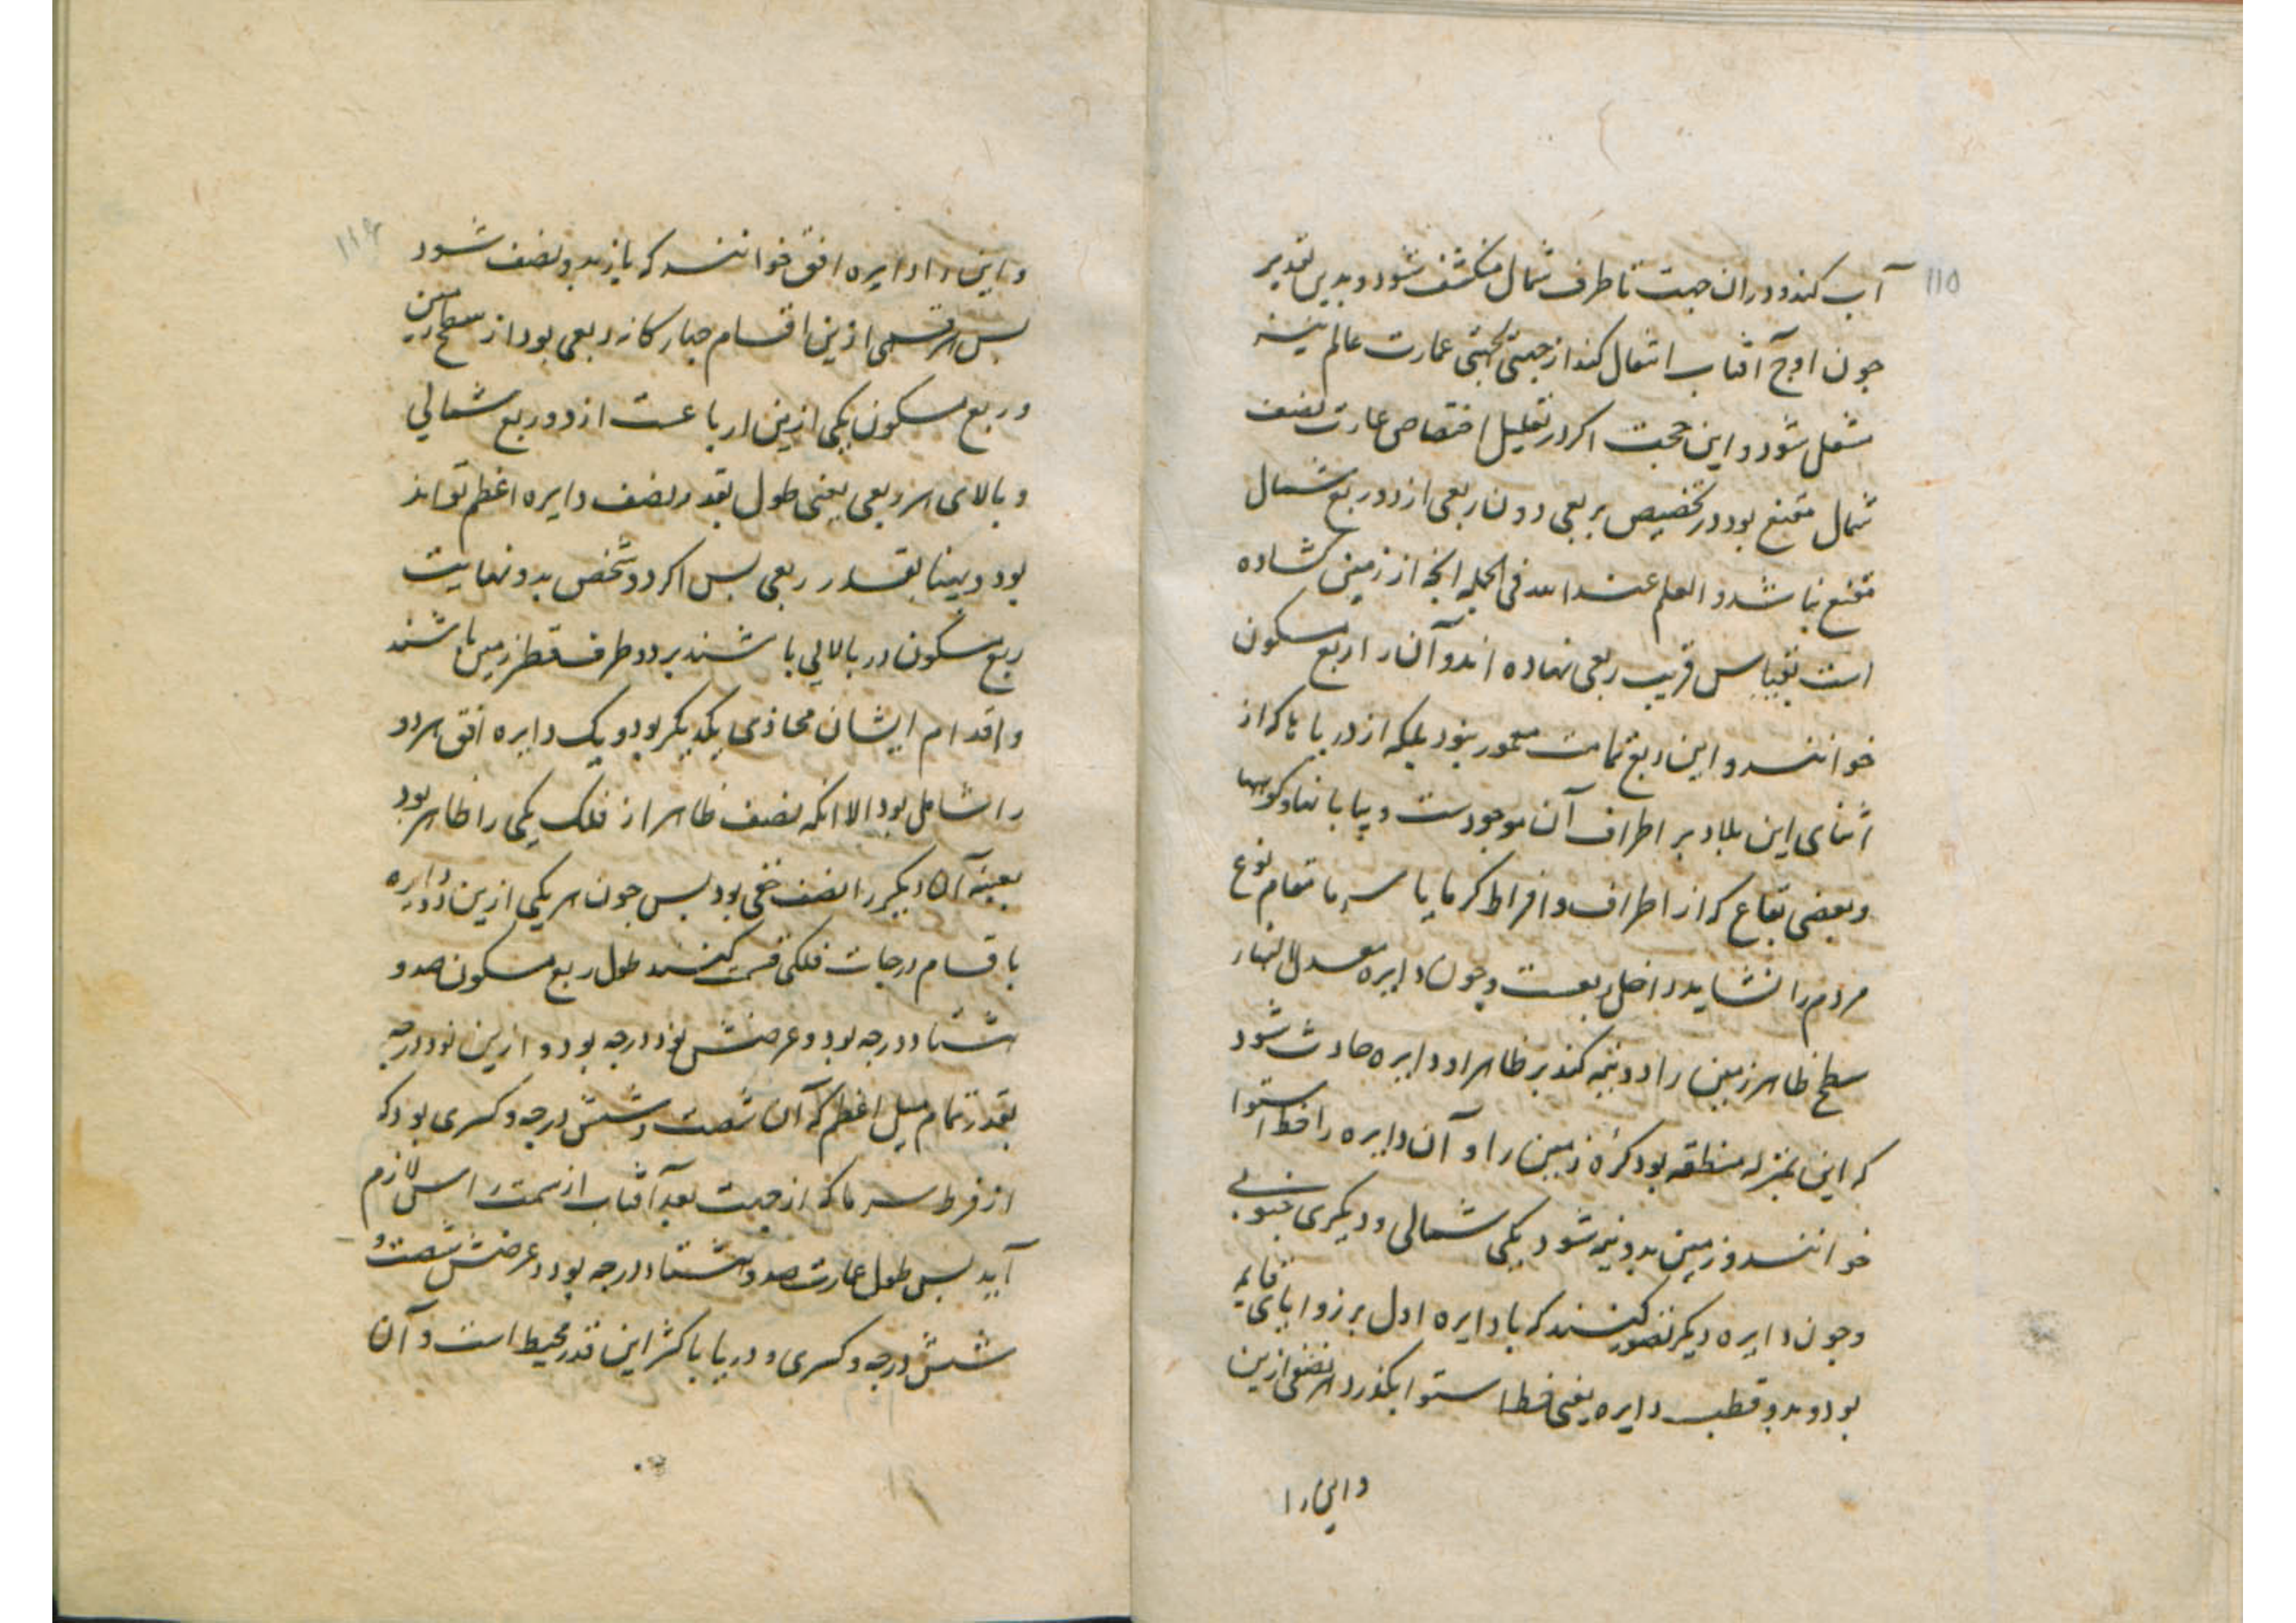 ۱۱۵
آب کند و دران جهت تا طرف شمال منکشف شود و بدین تقدیر
جون اوج آفتاب انتقال کند از جهتی بجهتی عمارت عالم نیز
منتقل شود و این حجت اکر در تعلیل اختصاص عمارت نصف
شمال مقنع بود در تخصیص بربعی دون ربعی از دو ربع شمال
مقنع نباشد و العلم عند الله فی الجمله انچه از زمین کشاده
است بقیاس قریب ربعی نهاده اند و آن را ربع مسکون
خوانند و این ربع تمامت معمور نبود بلکه از دریاها که از
اثنای این بلاد بر اطراف آن موجودست و بیابانها و کوهها
و بعضی بقاع که از اطراف و افراط کرما یا سرما مقام نوع
مردم را نشاید داخل ربعست و جون دایره معدل النهار
سطح ظاهر زمین را دو نیمه کند بر ظاهر او دایره حادث شود
که این بمنزله منطقه بود کره زمین را و آن دایره را خط استوا
خوانند و زمین بدو نیمه شود یکی شمالی و دیکری جنوبی
و جون دایره دیکر تصور کنند که با دایره اول بر زوایای قایمه
بود و بدو قطب دایره یعنی خط استوا بکذرد هر نصفی ازین
و این را
۱۱۶
و این را دایره افق خوانند که باز بدو نصف شود
بس هر قسمی ازین اقسام جهارکانه ربعی بود از سطح زمین
و ربع مسکون یکی ازین ارباعست از دو ربع شمالی
و بالای هر ربعی یعنی طول بقدر نصف دایره اعظم تواند
بود و بهنا بقدر ربعی بس اکر دو شخص بدو نهایت
ربع مسکون در بالایی باشند بر دو طرف قطر زمین باشند
و اقدام ایشان محاذی یکدیکر بود و یک دایره افق هر دو
را شامل بود الا انکه نصف ظاهر از فلک یکی را ظاهر بود
بعینه آن دیکر را نصف خفی بود بس جون هر یکی ازین دو دایره
باقسام درجات فلکی قسمت کنند طول ربع مسکون صد و
هشتاد درجه بود و عرضش نود درجه بود و ازین نود درجه
بقدر تمام میل اعظم که آن شصت و شش درجه و کسری بود که
از فرط سرما که از جهت بعد آفتاب از سمت راس لازم
آید بس طول عمارت صد و هشتاد درجه بود و عرضش شصت و
شش درجه و کسری و دریا باکثر این قدر محیط است و آن